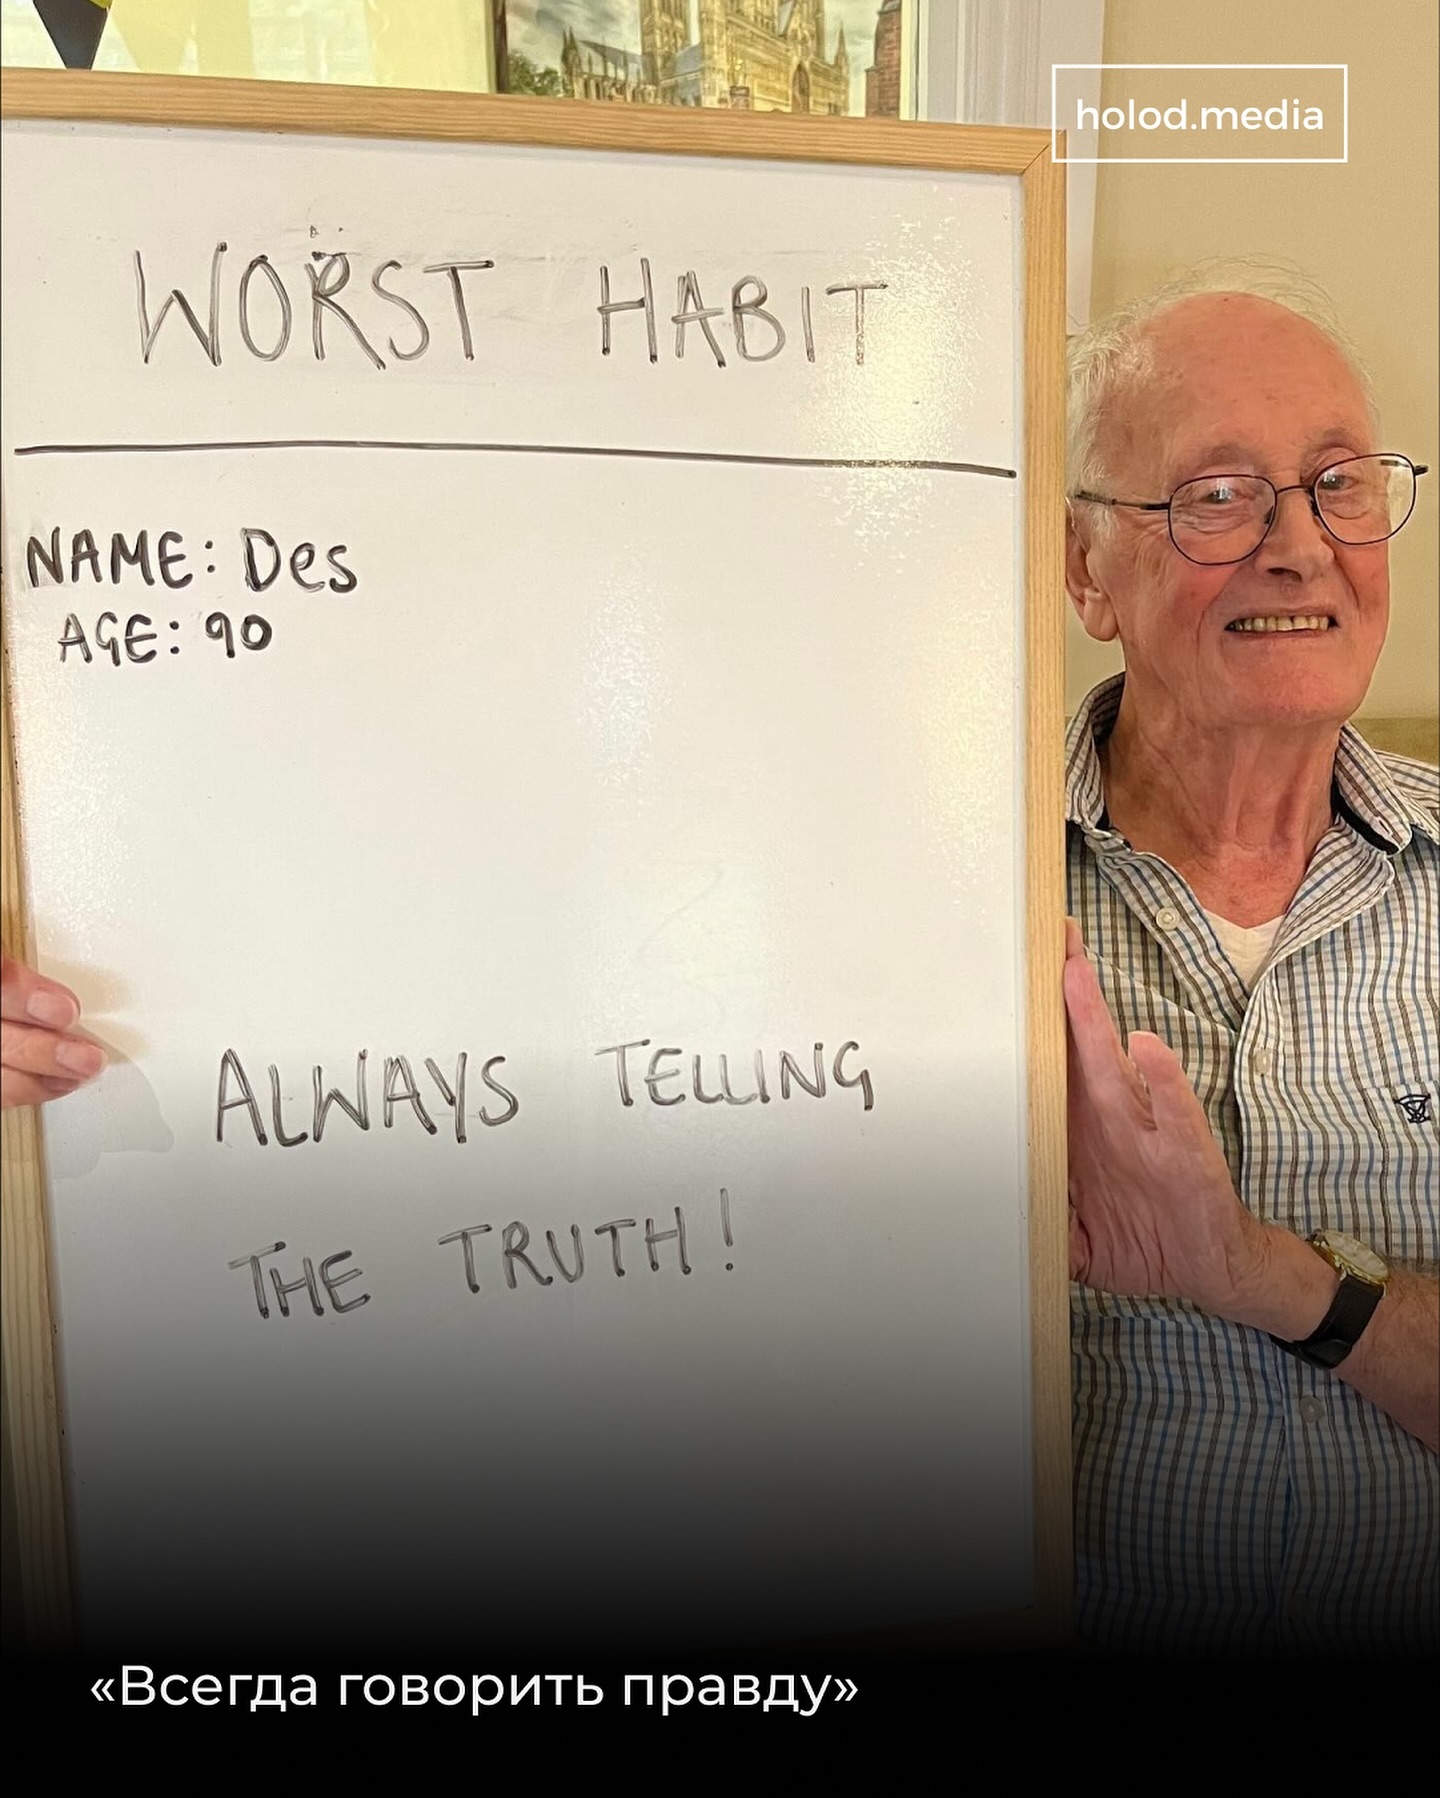 holod.media
WORST HABIT
NAME: Des
AGE: 90
ALWAYS TELLING
THE TRUTH!
«Всегда говорить правду»